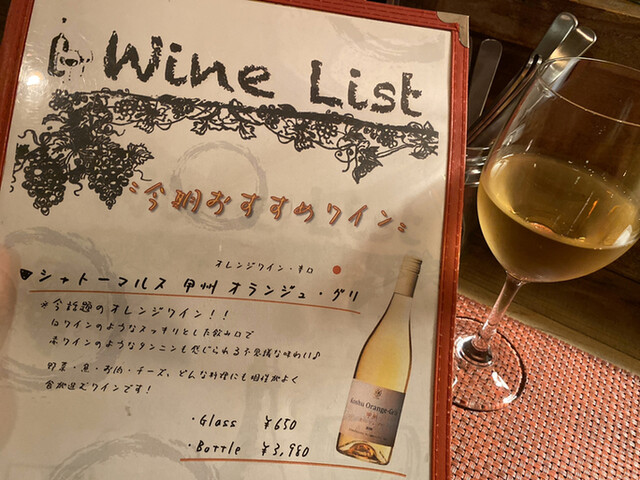 Wine List
今期おすすめワイン
オレンジワイン・辛口
シャトーマルス 甲州 オランジュ・グリ
※今話題のオレンジワイン!!
白ワインのようなスッキリとした飲み口で
赤ワインのようなタンニンも感じられる不思議な味わい♪
野菜・魚・お肉・チーズ、どんな料理にも相性がよく
食欲進むワインです!
・Glass ¥650
・Bottle ¥3,980
Koshu Orange-Gris
甲州